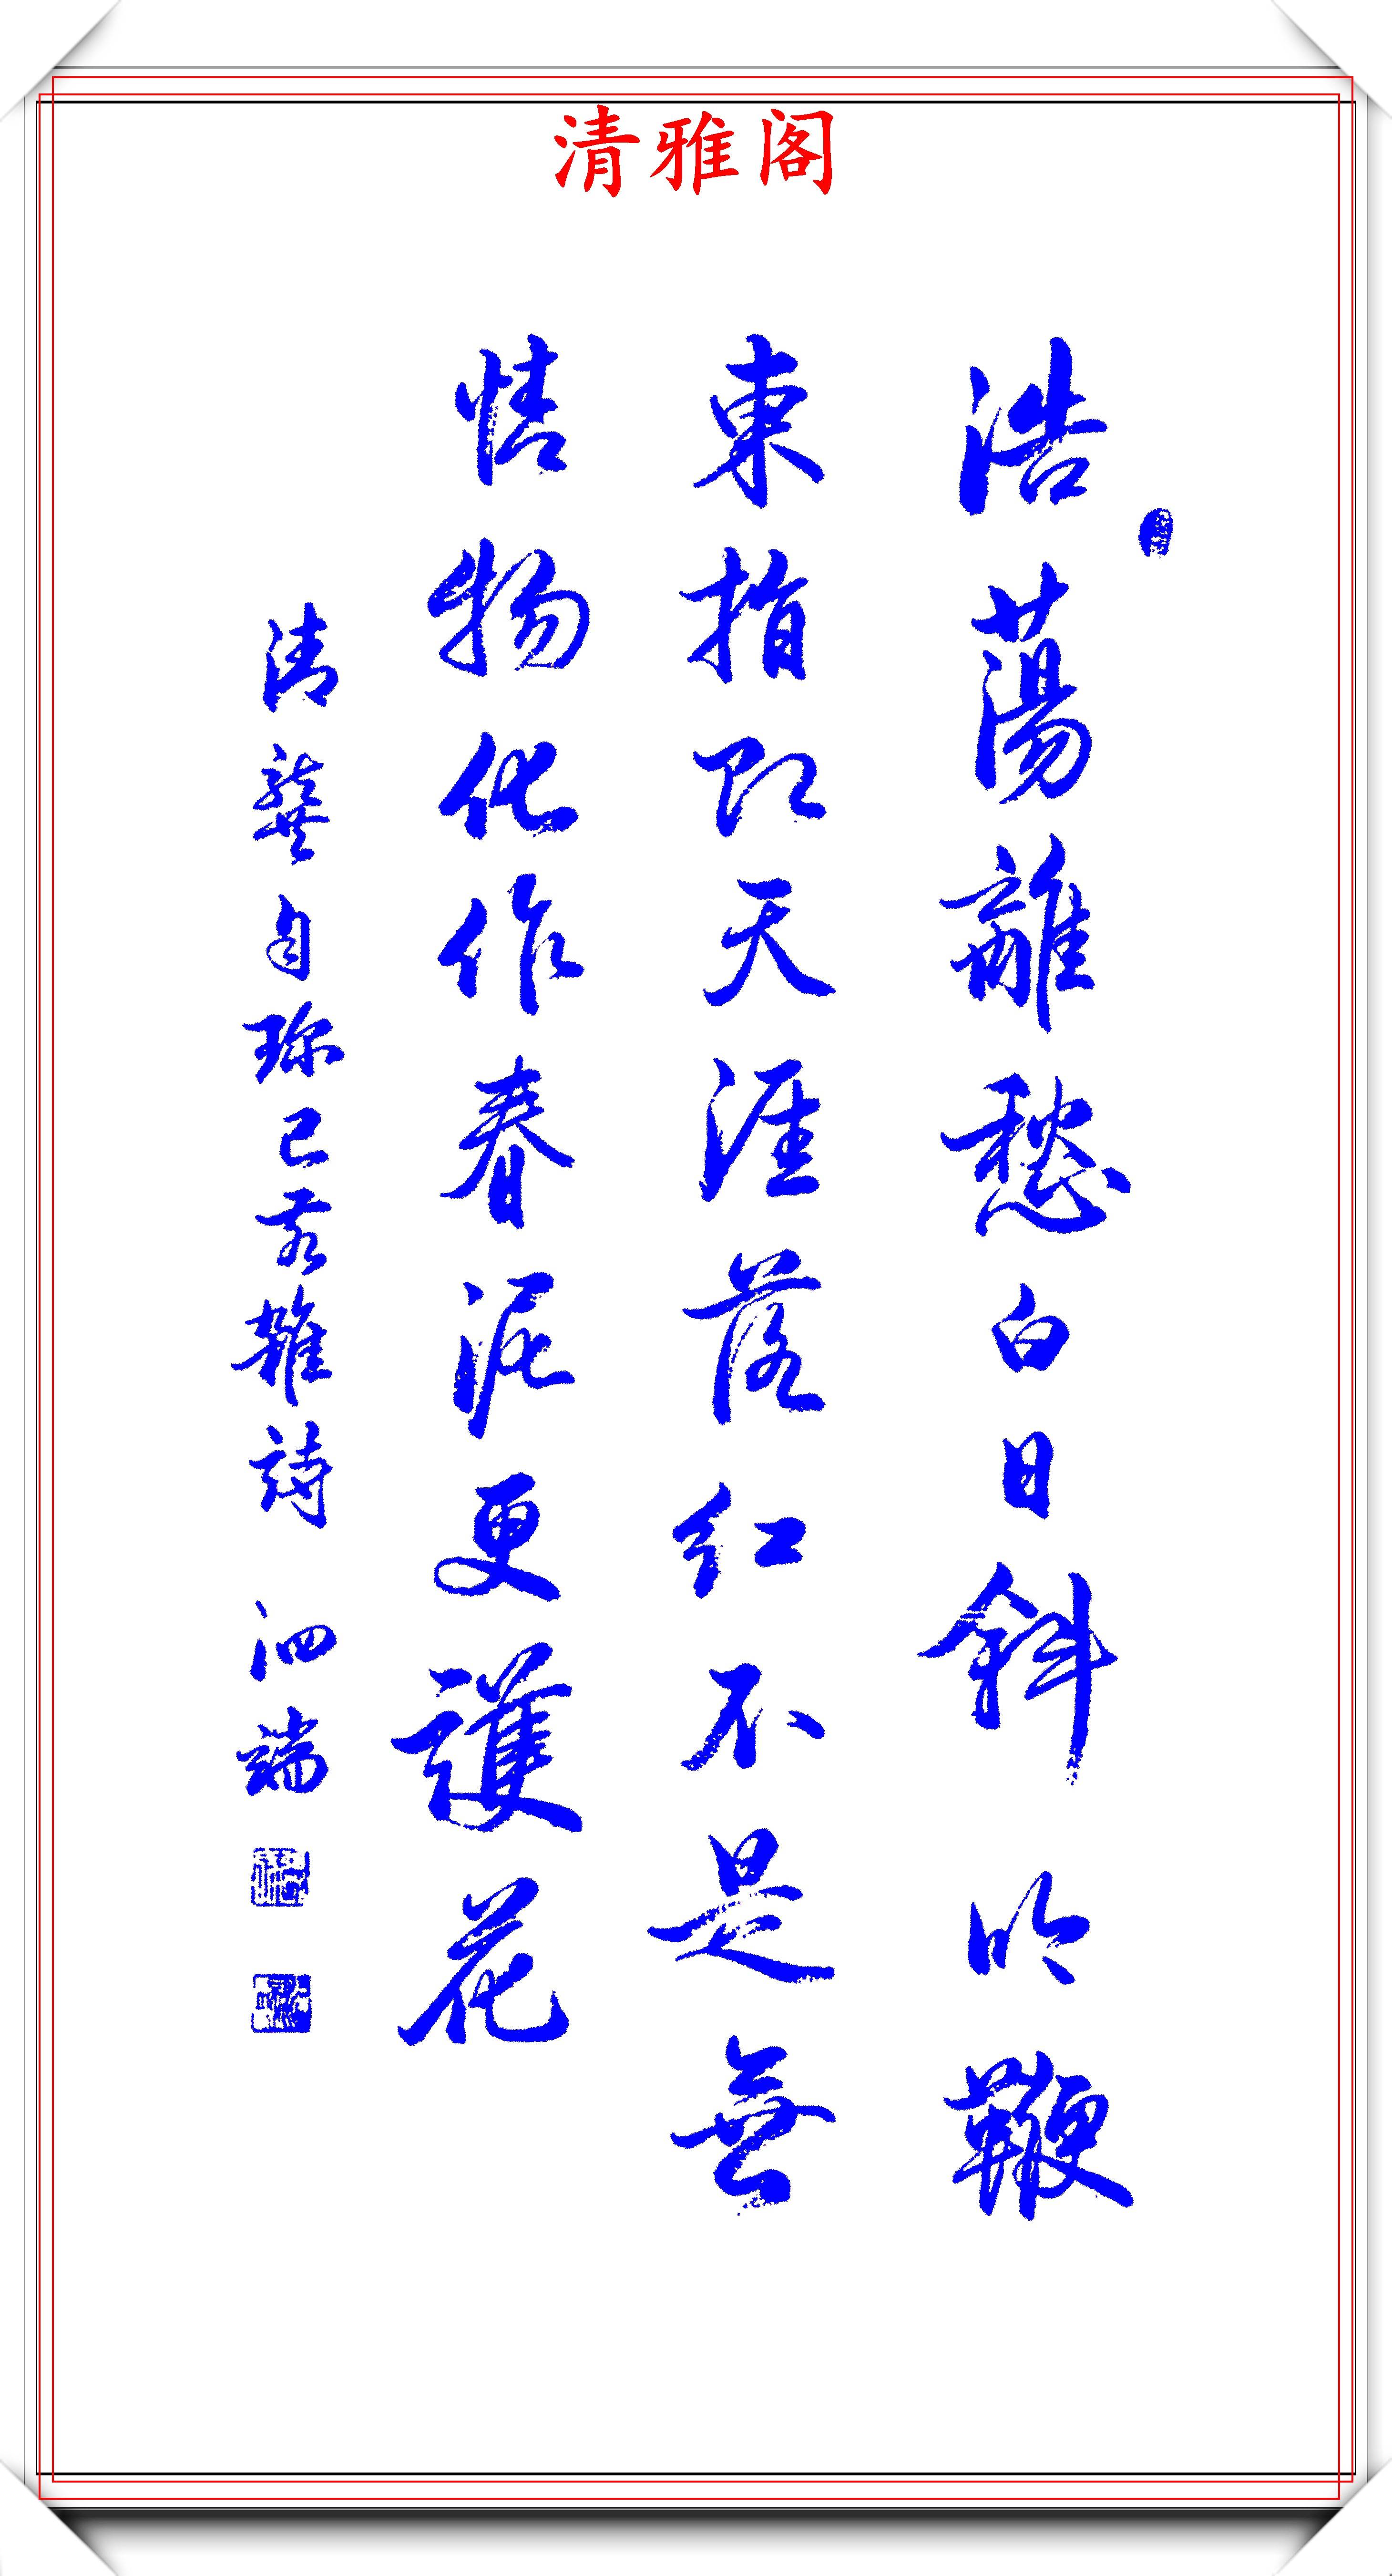 清雅阁
浩蕩離愁白日斜吟鞭
東指即天涯落红不是無
情物化作春泥更護花
清龔自珍己亥雜詩 泗端